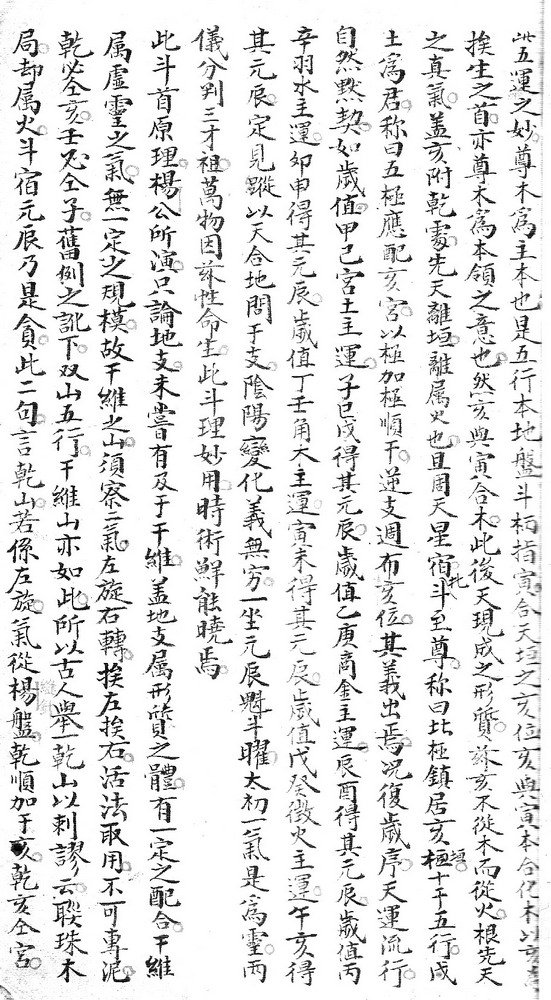 此五運之妙尊木為主木也是五行本地盤斗柄指寅合天垣之亥位亥與寅本合化木以亥
挨生之首亦尊木為本領之意也然亥與寅合木此後天現成之形質茲亥不從木而從火根先天
之真氣蓋亥附乾處先天離垣離属火也且周天星宿斗至尊称曰北極鎮居亥極垣十干五行戊
土為君称曰五極應配亥宮以極加極順干逆支週布亥位其義出焉况復歲序天運流行
自然默契如歲值甲己宮土主運子巳戌得其元辰歲值乙庚商金主運辰酉得其元辰歲值丙
辛羽水主運卯申得其元辰歲值丁壬角木主運寅未得其元辰歲值戊癸徵火主運午亥得
其元辰定見蹤以天合地問于支陰陽變化義無穷一坐元辰魁斗曜太初一氣是為靈兩
儀分判三才祖萬物因玆性命生此斗理妙用時術鮮能曉焉
此斗首原理楊公所演只論地支未嘗有及于干維蓋地支属形質之體有一定之配合干維
属虛靈之氣無一定之規模故干維之山須察二氣左旋右轉挨左挨右活法取用不可專泥
乾必仝亥壬必仝子舊例之訛下双山五行干維山亦如此所以古人舉一乾山以刺謬云聫珠木
局却属火斗宿元辰乃是貪此二句言乾山若係左旋氣從楊盤乾順加于亥乾亥仝宮